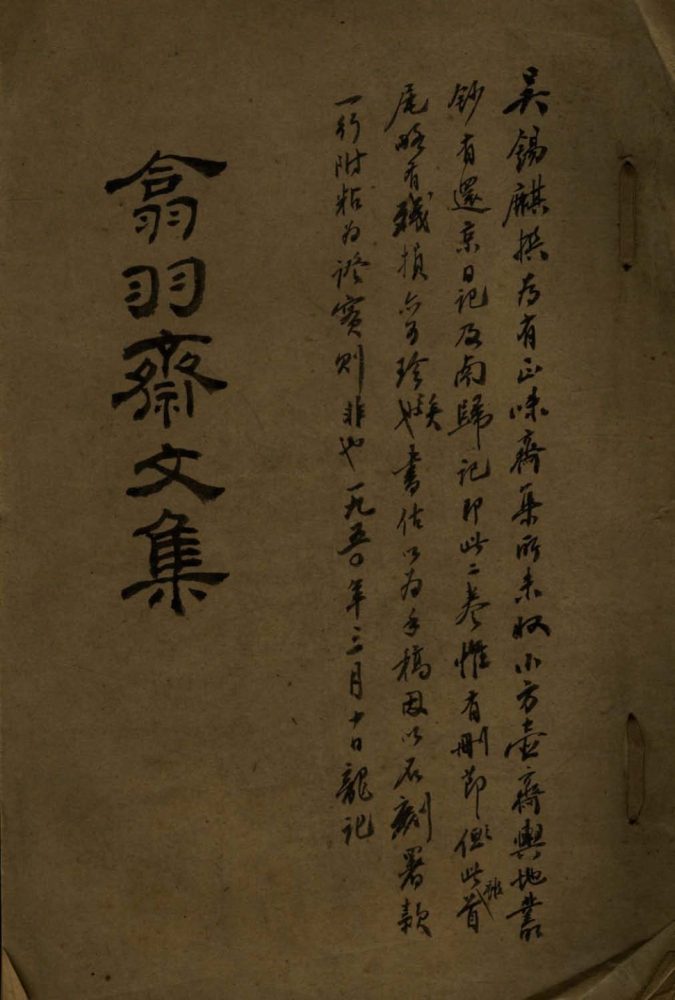 吴錫麒撰为有正味齋集所未收小方壺齋輿地叢
鈔有還京日記及南歸記即此二卷惟有刪節但此雖首
尾略有殘損亦可珍矣也書估以为手稿因以石刻署款
一行附粘为證實則非也一九五〇年三月十日龍記
翕羽齋文集